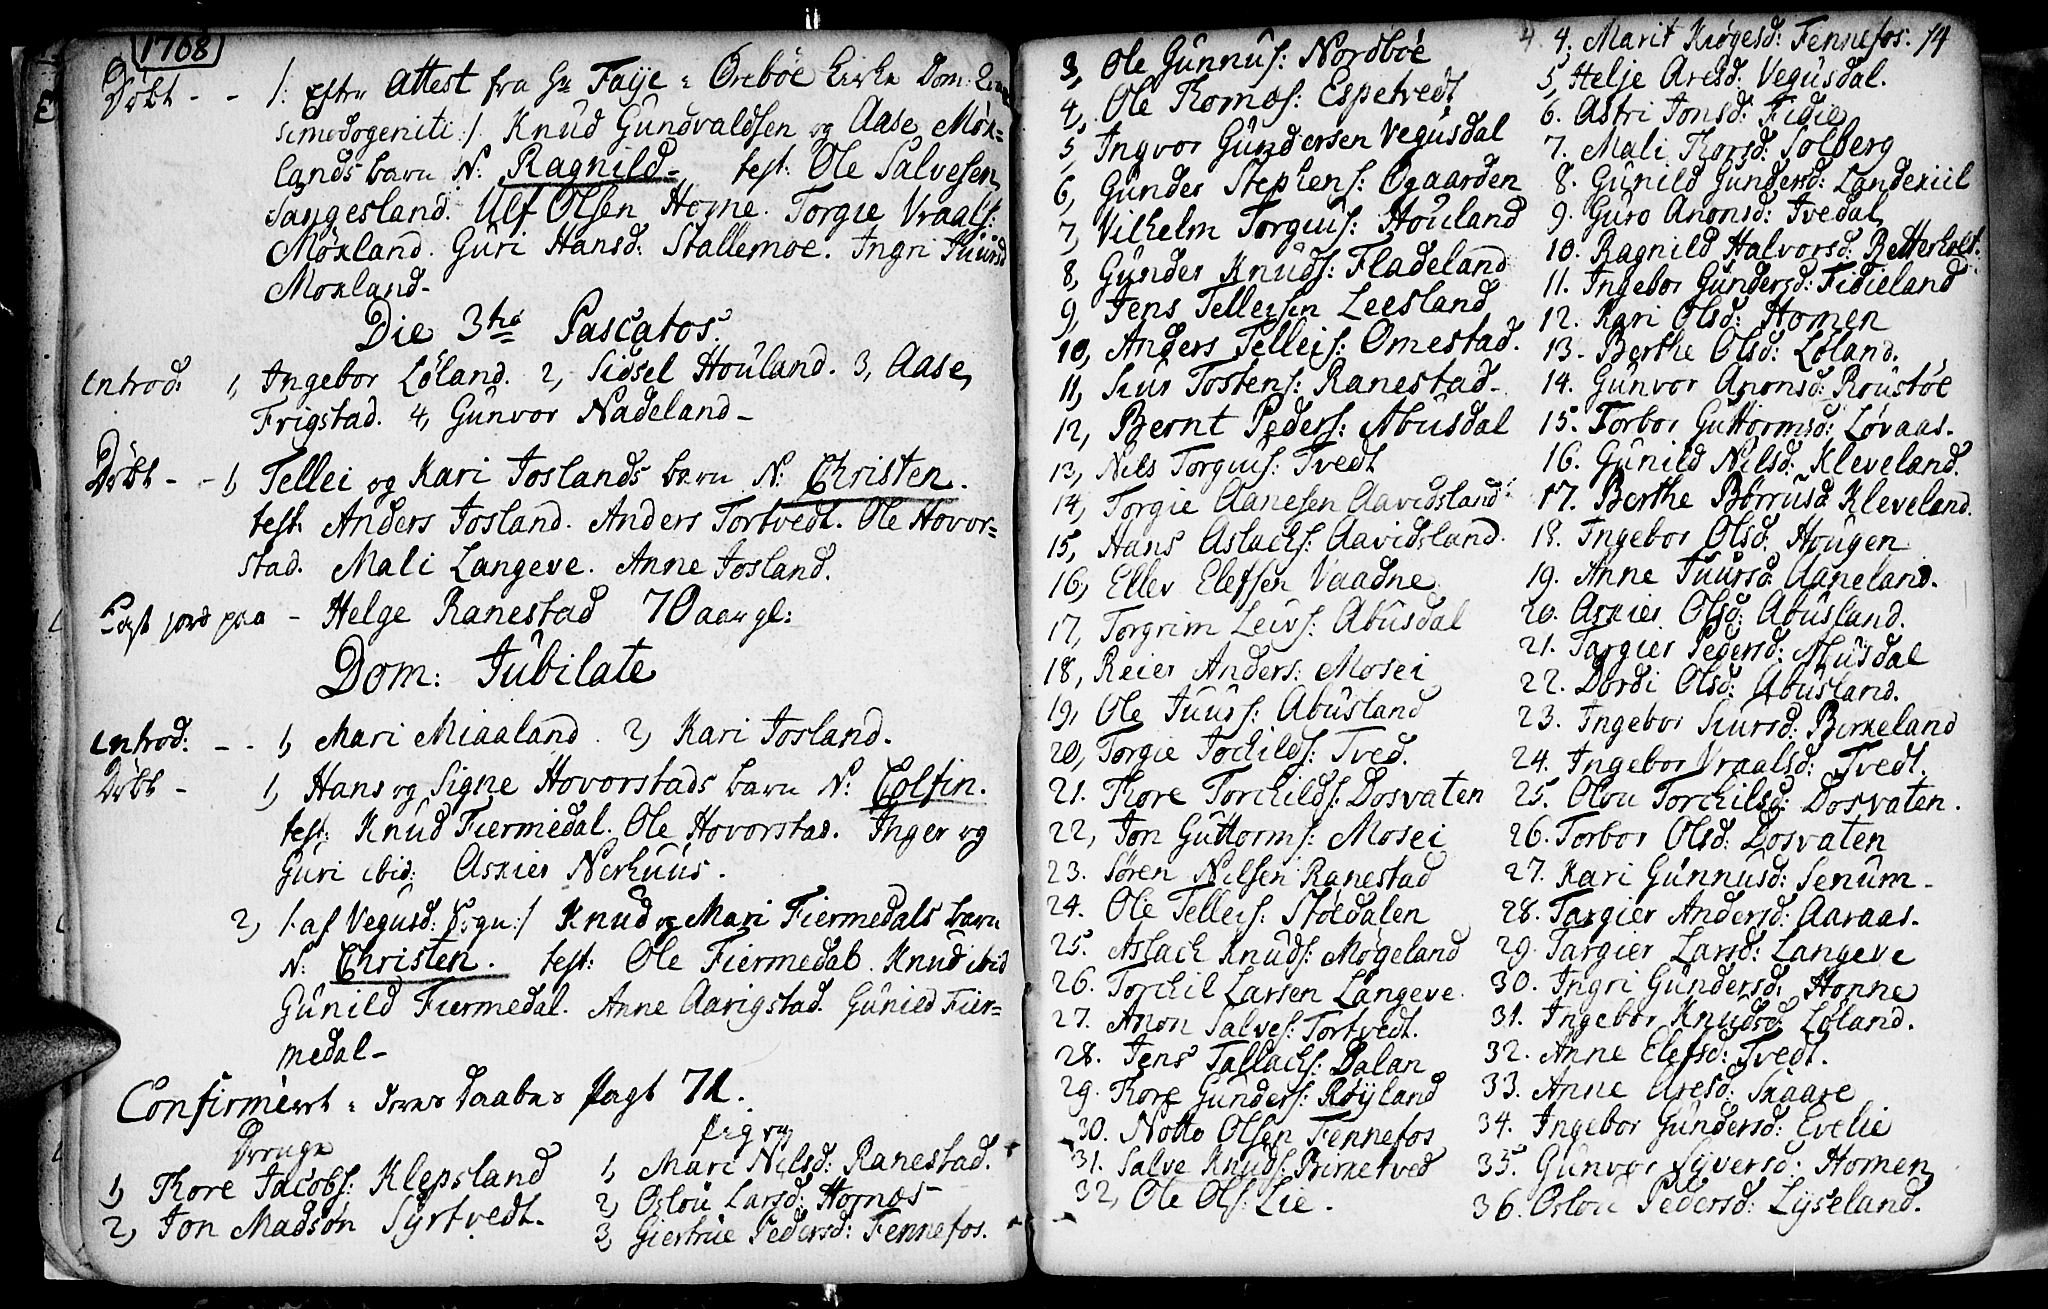 1768
Døbt - - /: efter Attest fra Hr Faye i Órebóe Kirke Dom:
simodogeniti :/ Knud Gundvaldsen og Aase Møx=
lands barn N: Ragnild - test: Ole Salvesen
Sangesland. Ulf Olsen Horne. Torgie Vraals:
Møxland. Guri Hansd: Stallemoe. Ingri Tuursd
Moxland-
Die 3tio Pascatos.
introd: 1, Ingebor Løland. 2, Sidsel Houland. 3, Aase
Frigstad. 4, Gunvor Nadeland-
Døbt - - 1, Tellei og Kari Joslands barn N: Christen.
test: Anders Josland. Anders Tortvedt. Ole Hovor=
stad. Mali Langeve. Anne Josland.
Kast jord paa - Helge Ranestad 70 aar gl:
Dom: Jubilate
introd: - - 1, Mari Miaaland. 2, Kari Josland.
Døbt - 1, Hans og Signe Hovorstads barn N: Colfin.
test: Knud Fiermedal. Ole Hovorstad. Inger og
Guri ibid: Asxier Nerhuus.
2, /: af Vegusd: Sogn :/ Knud og Mari Fiermedals barn
N: Christen. test: Ole Fiermedal. Knud ibid
Gunild Fiermedal. Anne Aarigstad. Gunild Fier=
medal-
Confirmeert i deres Daabes Pagt 71.
Drenge
1, Thore Jacobs: Klepsland
2, Jon Madsøn Syrtvedt.
Piger
1, Mari Nilsd: Ranestad.
2, Oslou Larsd: Hornes-
3, Giertrue Pedersd: Fennefos.
3, Ole Gunnus: Nordbøe
4, Ole Thomæs: Espetvedt
5 Ingvor Gundersen Vegusdal
6, Gunder Stephens: Øgaarden
7, Vilhelm Torguis: Houland
8, Gunder Knuds: Fladeland
9, Jens Telleisen Leesland
10, Anders Telleis: Omestad.
11, Siur Tostens: Ranestad-
12, Bernt Peders: Abusdal
13, Nils Torguis: Tvedt
14, Torgie Aanesen Aavidsland
15, Hans Aslachs: Aavidsland.
16, Ellev Elefsen Vaadne
17, Torgrim Leivs: Abusdal
18, Reier Anders: Mosei
19, Ole Tuurs: Abusland
20, Torgie Torchilds: Tved.
21. Thore Torchilds: Dosvaten
22, Jon Guttorms: Mosei
23. Søren Nilsen Ranestad
24. Ole Telleis: Støedalen
25. Aslach Knuds: Mogeland
26. Torchil Larsen Langeve.
27. Anon Salves: Tortvedt.
28. Jens Tallachs: Dalan
29. Thore Gunders: Røyland
30. Notto Olsen Fennefos
31. Salve Knuds: Birketved
32, Ole Ols: Lie.
14
4. Marit Krøgesd: Fennefos.
5, Helje Aresd: Vegusdal.
6. Astri Jonsd: Fidie
7. Mali Thorsd: Solberg
8. Gunild Gundersd: Landexiil
9. Guro Anonsd: Tvedal
10. Ragnild Halvorsd: Betterholt.
11. Ingebor Gundersd: Fidieland
12. Kari Olsd: Homen
13- Berthe Olsd: Løland.
14. Gunvor Anonsd: Roustøe
15. Torbor Guttormsd: Løvaas.
16. Gunild Nilsd: Kleveland.
17. Berthe Børrusd: Kleveland.
18. Ingebor Olsd: Hougen
19. Anne Tuursd: Aaneland.
20. Asxier Olsd: Abusland.
21. Targier Pedersd: Musdal
22. Dordi Olsd: Abusland.
23. Ingebor Siursd: Birkeland
24. Ingebor Vraalsd: Tvedt.
25. Olou Torchilsd: Dosvaten.
26. Torbor Olsd: Dosvaten
27. Kari Gunnusd: Senum-
28. Targier Andersd: Aaraas.
29. Targier Larsd: Langeve
30. Ingri Gundersd: Honne
31. Ingebor Knudsd: Løland.
32. Anne Elefsd: Tvedt.
33. Anne Aresd: Skaare
34. Ingebor Gundersd: Evelie
35. Gunvor Syversd: Homen
36. Oslou Pedersd: Lyseland.